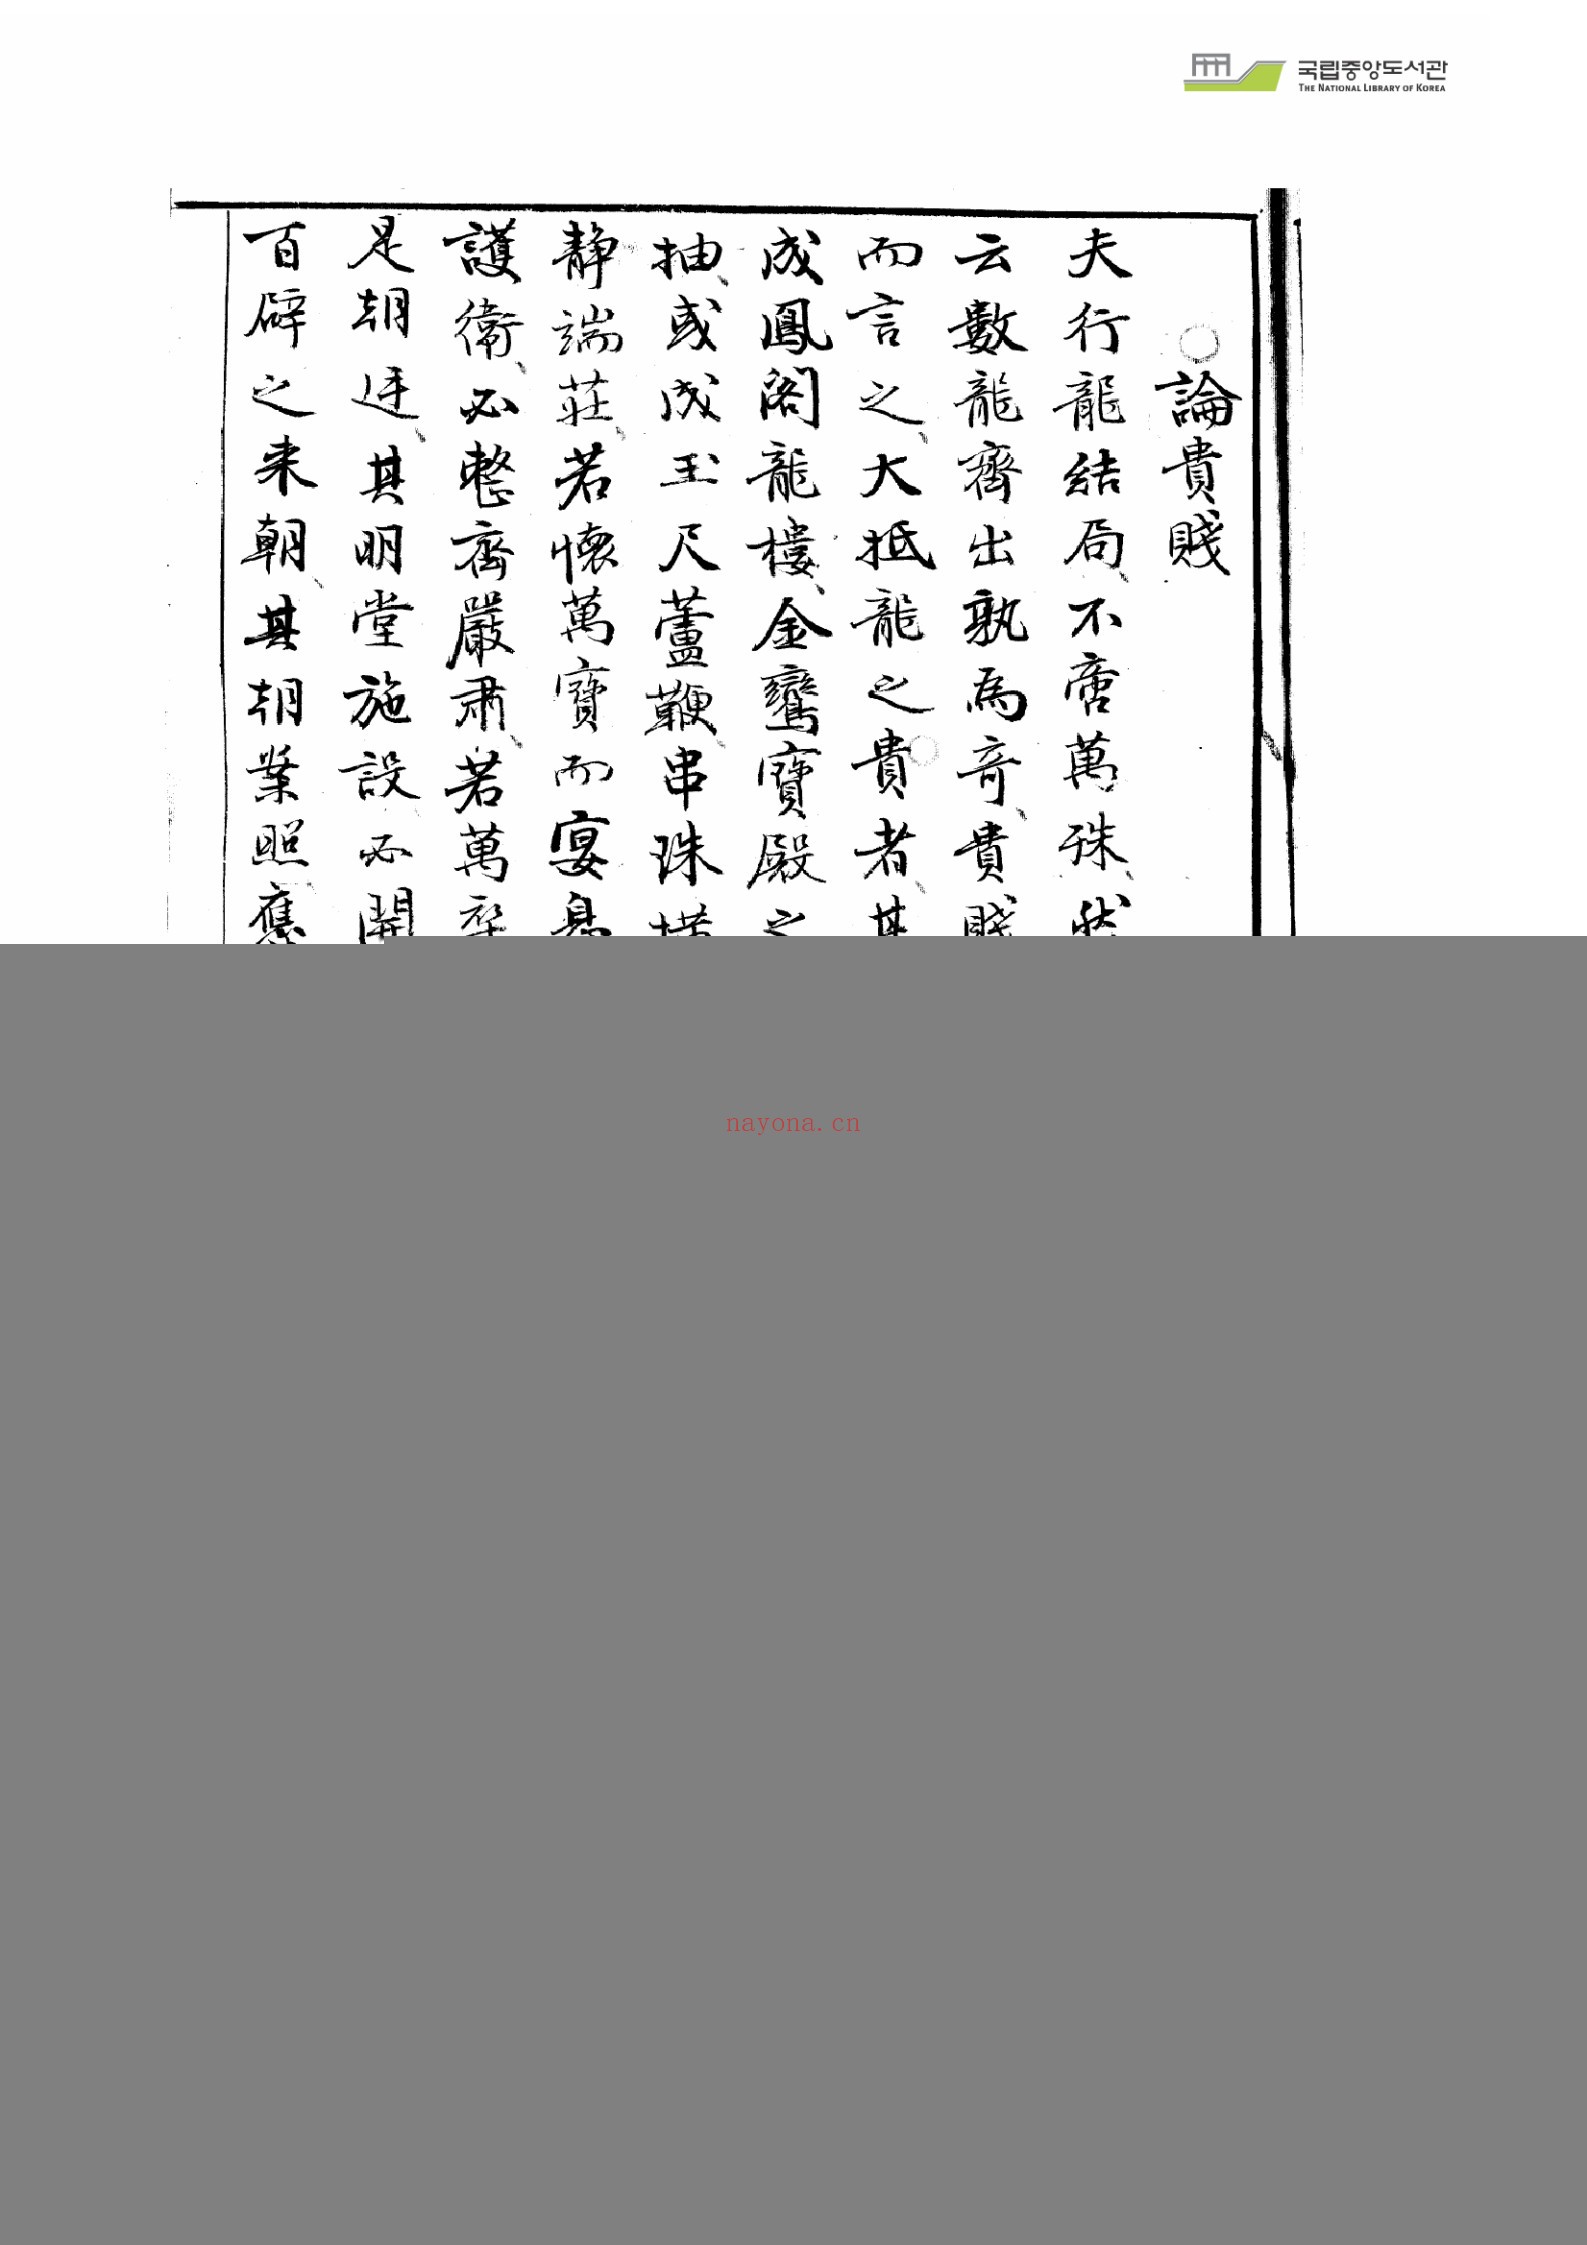 국립중앙도서관
THE NATIONAL LIBRARY OF KOREA
○論貴賤
夫行龍結局不啻萬殊然
云數龍齊出孰為奇貴賤
而言之大抵龍之貴者其
成鳳閣龍樓金鸞寶殿之
抽或成玉尺蘆鞭串珠
靜端莊若懷萬寶而宴息
護衛必整齊嚴肅若萬
是朝迓其明堂施設必開
百辟之来朝其朝案照應
nayona.cn